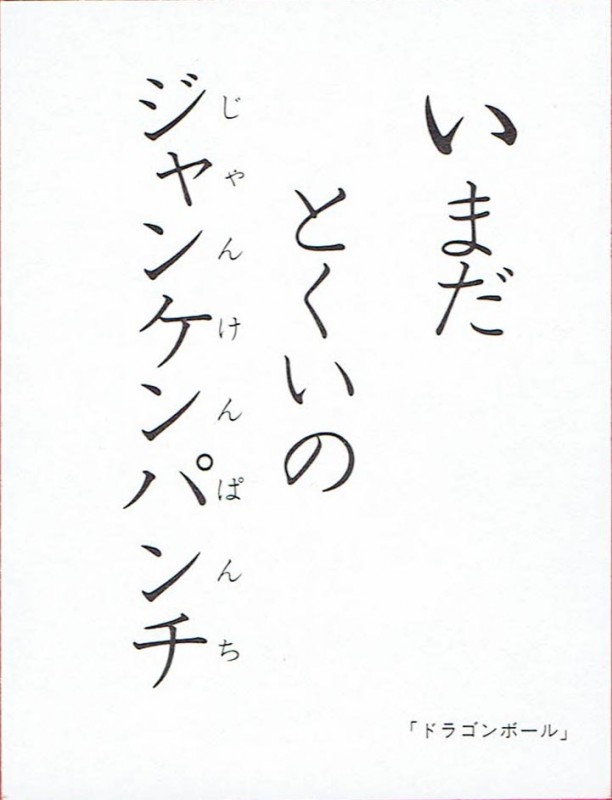 いまだ
とくいの
ジャンケンパンチ
じゃんけんぱんち
「ドラゴンボール」